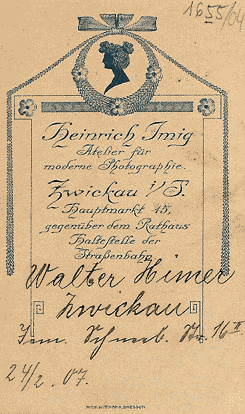 1655/04
Heinrich Imig
Atelier für
moderne Photographie.
Zwickau i/S.
Hauptmarkt 15,
gegenüber dem Rathaus
Haltestelle der
Straßenbahn
Walter Himer
Zwickau
Schneeb. Str. 16 II
24/2. 07.